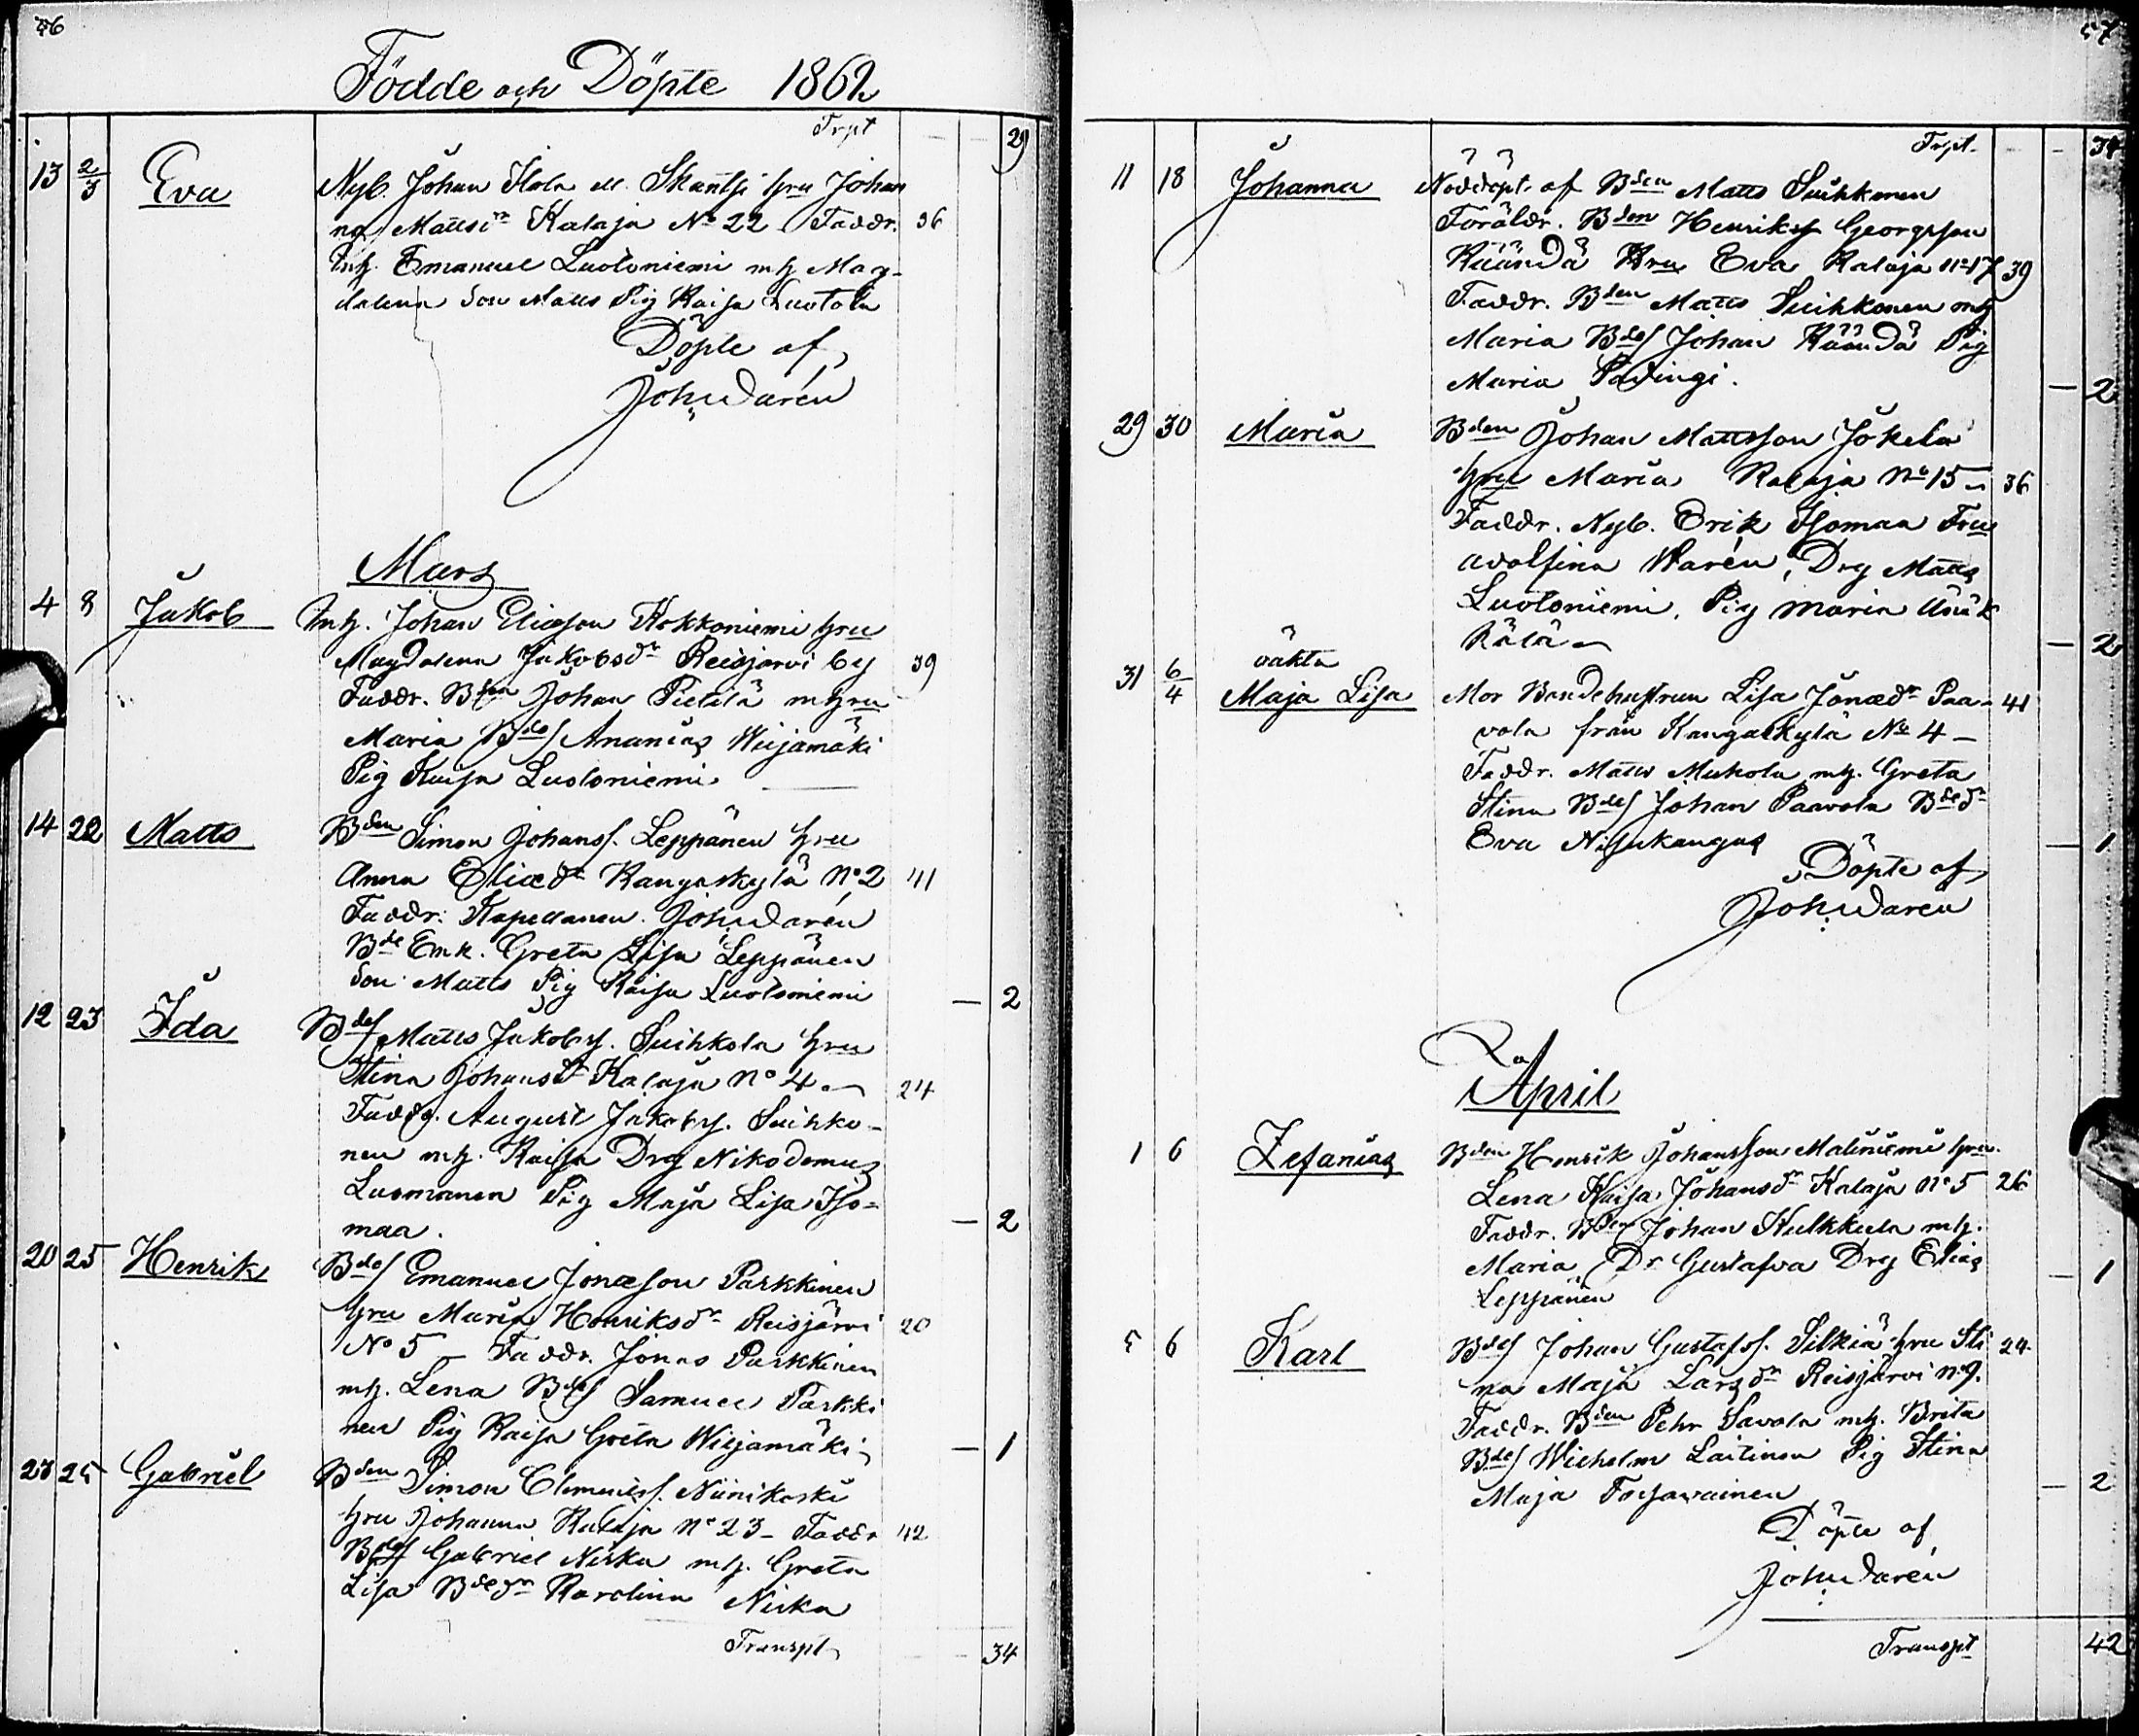 56
Födde och Döpte 1862
Trpt 29
13 2/3 Eva Nyb. Johan Ilola ell. Skantsi hru Johan
na Mattsdr Kalaja No 22 Faddr. 36
Inh. Emanuel Luotoniemi mh Mag-
dalena Son Matts Pig Kaisa Luotola
Döpte af
Joh Warén
Mars
4 8 Jakob Inh. Johan Eliasson Kokkoniemi hru
Magdalena Jakobsdr Reisjärvi by 39
Faddr. Bden Johan Pietilä m hru
Maria Bdes Ananias Wiejamäki
Pig Kaisa Luotoniemi
14 22 Matts Bden Simon Johanss. Leppänen hru
Anna Eliædr Kangaskylä No 2 41
Faddr. Kapellanen Joh Warén
Bde Enk. Greta Lisa Leppänen
Son Matts Pig Kaisa Luotoniemi — 2
12 23 Ida Bdes Matts Jakobss. Suihkola hru
Stina Johansdr Kalaja No 4 24
Faddr. August Jakobss. Suihko-
nen mh. Kaisa Drg Nikodemus
Luomanen Pig Maja Lisa Iso-
maa. — 2
20 25 Henrik Bdes Emanuel Jonæson Parkkinen
hru Maria Henriksdr Reisjärvi 20
No 5 — Faddr. Jonas Parkkinen
mh. Lena Bdes Samuel Parkki
nen Pig Kaisa Greta Wiejamäki — 1
23 25 Gabriel Bden Simon Clemetss. Niinikoski
hru Johanna Kalaja No 23 — Faddr 42
Bdes Gabriel Niska mh. Greta
Lisa Bdedr Karolina Niska
Transpt 34
57
Trpt. 34
11 18 Johanna Nöddöpt. af Bden Matts Suihkonen
Föräldr. Bden Henrik Georgsson
Räändä Hru Eva Kalaja No 17 39
Faddr. Bden Matts Suihkonen mh
Maria Bdes Johan Räändä Pig
Maria Padingi. — 2
29 30 Maria Bden Johan Mattsson Jokela
hru Maria Kalaja No 15 36
Faddr. Nyb. Erik Isomaa Fru
Adolfina Warén, Drg Matts
Luotoniemi, Pig Maria
— 2
31 6/4 oäkta Maja Lisa Mor Bondehustrun Lisa Jonædr Paa- 41
vola från Kangaskylä No 4 —
Faddr. Matts Muhola mh. Greta
Stina Bdes Johan Paavola Bdedr
Eva Nisukangas — 1
Döpte af
Joh Warén
April
1 6 Zefanias Bden Henrik Johansson Maliniemi hru
Lena Kaisa Johansdr Kalaja No 5 26
Faddr. Bden Johan Kulkkula mh.
Maria Dr Gustafva Drg Elias
Leppänen — 1
5 6 Karl Bdes Johan Gustafss. Silkiä hru Sti 24
na Maja Larsdr Reisjärvi No 9.
Faddr. Bden Pehr Savola mh. Brita
Bdes Wilhelm Laitinen Pig Stina
Maja Torsavainen — 2
Döpte af
Joh Warén
Transpt 42